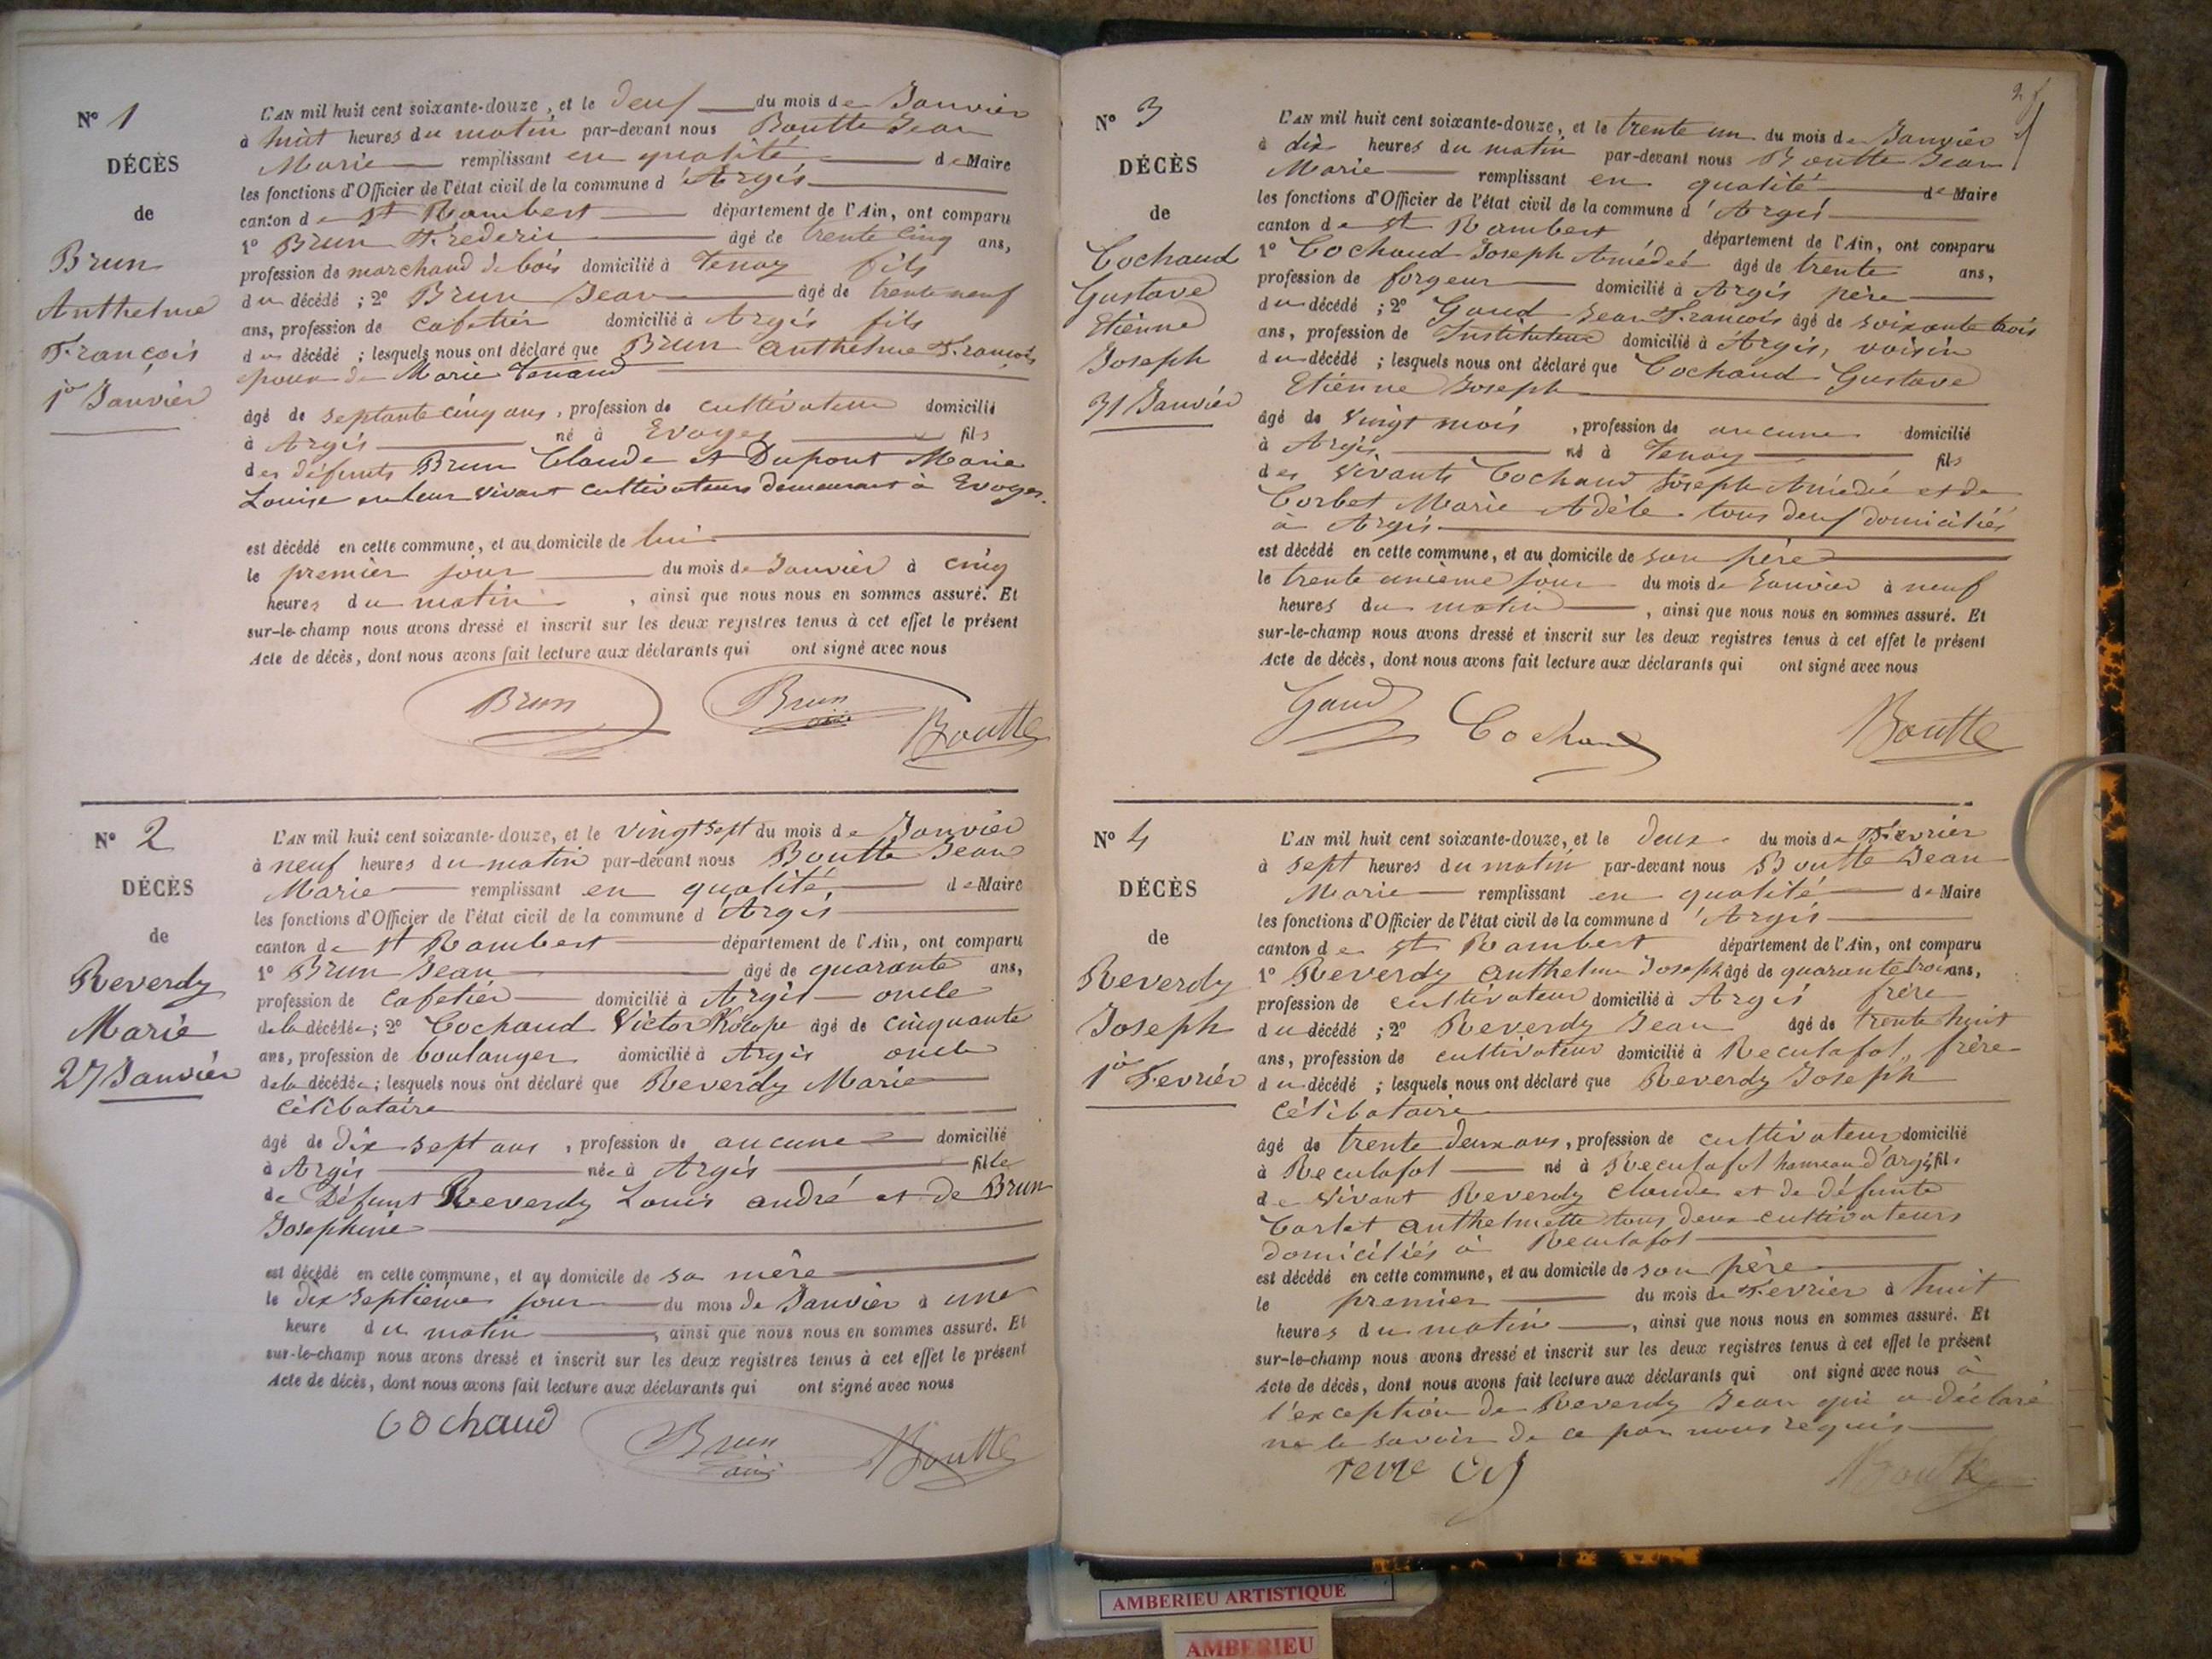 N° 1
DÉCÈS
de
Brun
Anthelme
François
1er Janvier
L'AN mil huit cent soixante-douze, et le deux du mois de Janvier
à huit heures du matin par-devant nous Boutte Jean
Marie remplissant en qualité de Maire
les fonctions d'Officier de l'état civil de la commune d'Argis
canton de St Rambert département de l'Ain, ont comparu
1° Brun Frederic âgé de trente cinq ans,
profession de marchand de bois domicilié à Tenay fils
du décédé ; 2° Brun Jean âgé de trente neuf
ans, profession de cafetier domicilié à Argis fils
du décédé ; lesquels nous ont déclaré que Brun Anthelme François
époux de Marie Tenand
âgé de septante cinq ans, profession de cultivateur domicilié
à Argis né à Evoges fils
des défunts Brun Claude et Dupont Marie
Louise en leur vivant cultivateurs demeurant à Evoges.
est décédé en cette commune, et au domicile de lui
le premier jour du mois de Janvier à cinq
heures du matin, ainsi que nous nous en sommes assuré. Et
sur-le-champ nous avons dressé et inscrit sur les deux registres tenus à cet effet le présent
Acte de décès, dont nous avons fait lecture aux déclarants qui ont signé avec nous
Brun Brun ainé Boutte
N° 2
DÉCÈS
de
Reverdy
Marie
27 Janvier
L'AN mil huit cent soixante-douze, et le vingt sept du mois de Janvier
à neuf heures du matin par-devant nous Boutte Jean
Marie remplissant en qualité de Maire
les fonctions d'Officier de l'état civil de la commune d'Argis
canton de St Rambert département de l'Ain, ont comparu
1° Brun Jean âgé de quarante ans,
profession de cafetier domicilié à Argis oncle
de la décédée ; 2° Cochaud Victor âgé de cinquante
ans, profession de boulanger domicilié à Argis oncle
de la décédée ; lesquels nous ont déclaré que Reverdy Marie
célibataire
âgé de dix sept ans, profession de aucune domicilié
à Argis née à Argis fille
de Défunt Reverdy Louis andré et de Brun
Josephine
est décédé en cette commune, et au domicile de sa mère
le dix septième jour du mois de Janvier à une
heure du matin, ainsi que nous nous en sommes assuré. Et
sur-le-champ nous avons dressé et inscrit sur les deux registres tenus à cet effet le présent
Acte de décès, dont nous avons fait lecture aux déclarants qui ont signé avec nous
Cochaud Brun ainé Boutte
N° 3
DÉCÈS
de
Cochaud
Gustave
Etienne
Joseph
31 Janvier
L'AN mil huit cent soixante-douze, et le trente un du mois de Janvier
à dix heures du matin par-devant nous Boutte Jean
Marie remplissant en qualité de Maire
les fonctions d'Officier de l'état civil de la commune d'Argis
canton de St Rambert département de l'Ain, ont comparu
1° Cochaud Joseph Amédée âgé de trente ans,
profession de forgeur domicilié à Argis père
du décédé ; 2° Gaud Jean François âgé de soixante trois
ans, profession de Instituteur domicilié à Argis, voisin
du décédé ; lesquels nous ont déclaré que Cochaud Gustave
Etienne Joseph
âgé de vingt mois, profession de aucune domicilié
à Argis né à Tenay fils
des vivants Cochaud Joseph Amédée et de
Corbet Marie Adèle tous deux domiciliés
à Argis
est décédé en cette commune, et au domicile de son père
le trente unième jour du mois de Janvier à neuf
heures du matin, ainsi que nous nous en sommes assuré. Et
sur-le-champ nous avons dressé et inscrit sur les deux registres tenus à cet effet le présent
Acte de décès, dont nous avons fait lecture aux déclarants qui ont signé avec nous
Gaud Cochaud Boutte
N° 4
DÉCÈS
de
Reverdy
Joseph
1er Fevrier
L'AN mil huit cent soixante-douze, et le deux du mois de Fevrier
à sept heures du matin par-devant nous Boutte Jean
Marie remplissant en qualité de Maire
les fonctions d'Officier de l'état civil de la commune d'Argis
canton de St Rambert département de l'Ain, ont comparu
1° Reverdy Anthelme Joseph âgé de quarante trois ans,
profession de cultivateur domicilié à Argis frère
du décédé ; 2° Reverdy Jean âgé de trente huit
ans, profession de cultivateur domicilié à Reculafol, frère
du décédé ; lesquels nous ont déclaré que Reverdy Joseph
célibataire
âgé de trente deux ans, profession de cultivateur domicilié
à Reculafol né à Reculafol hameau d'Argis fils
de vivant Reverdy Claude et de défunte
Anthelmette tous deux cultivateurs
domiciliés à Reculafol
est décédé en cette commune, et au domicile de son père
le premier du mois de Fevrier à huit
heures du matin, ainsi que nous nous en sommes assuré. Et
sur-le-champ nous avons dressé et inscrit sur les deux registres tenus à cet effet le présent
Acte de décès, dont nous avons fait lecture aux déclarants qui ont signé avec nous à
l'exception de Reverdy Jean qui a déclaré
ne le savoir de ce par nous requis
Boutte
AMBERIEU ARTISTIQUE
AMBERIEU